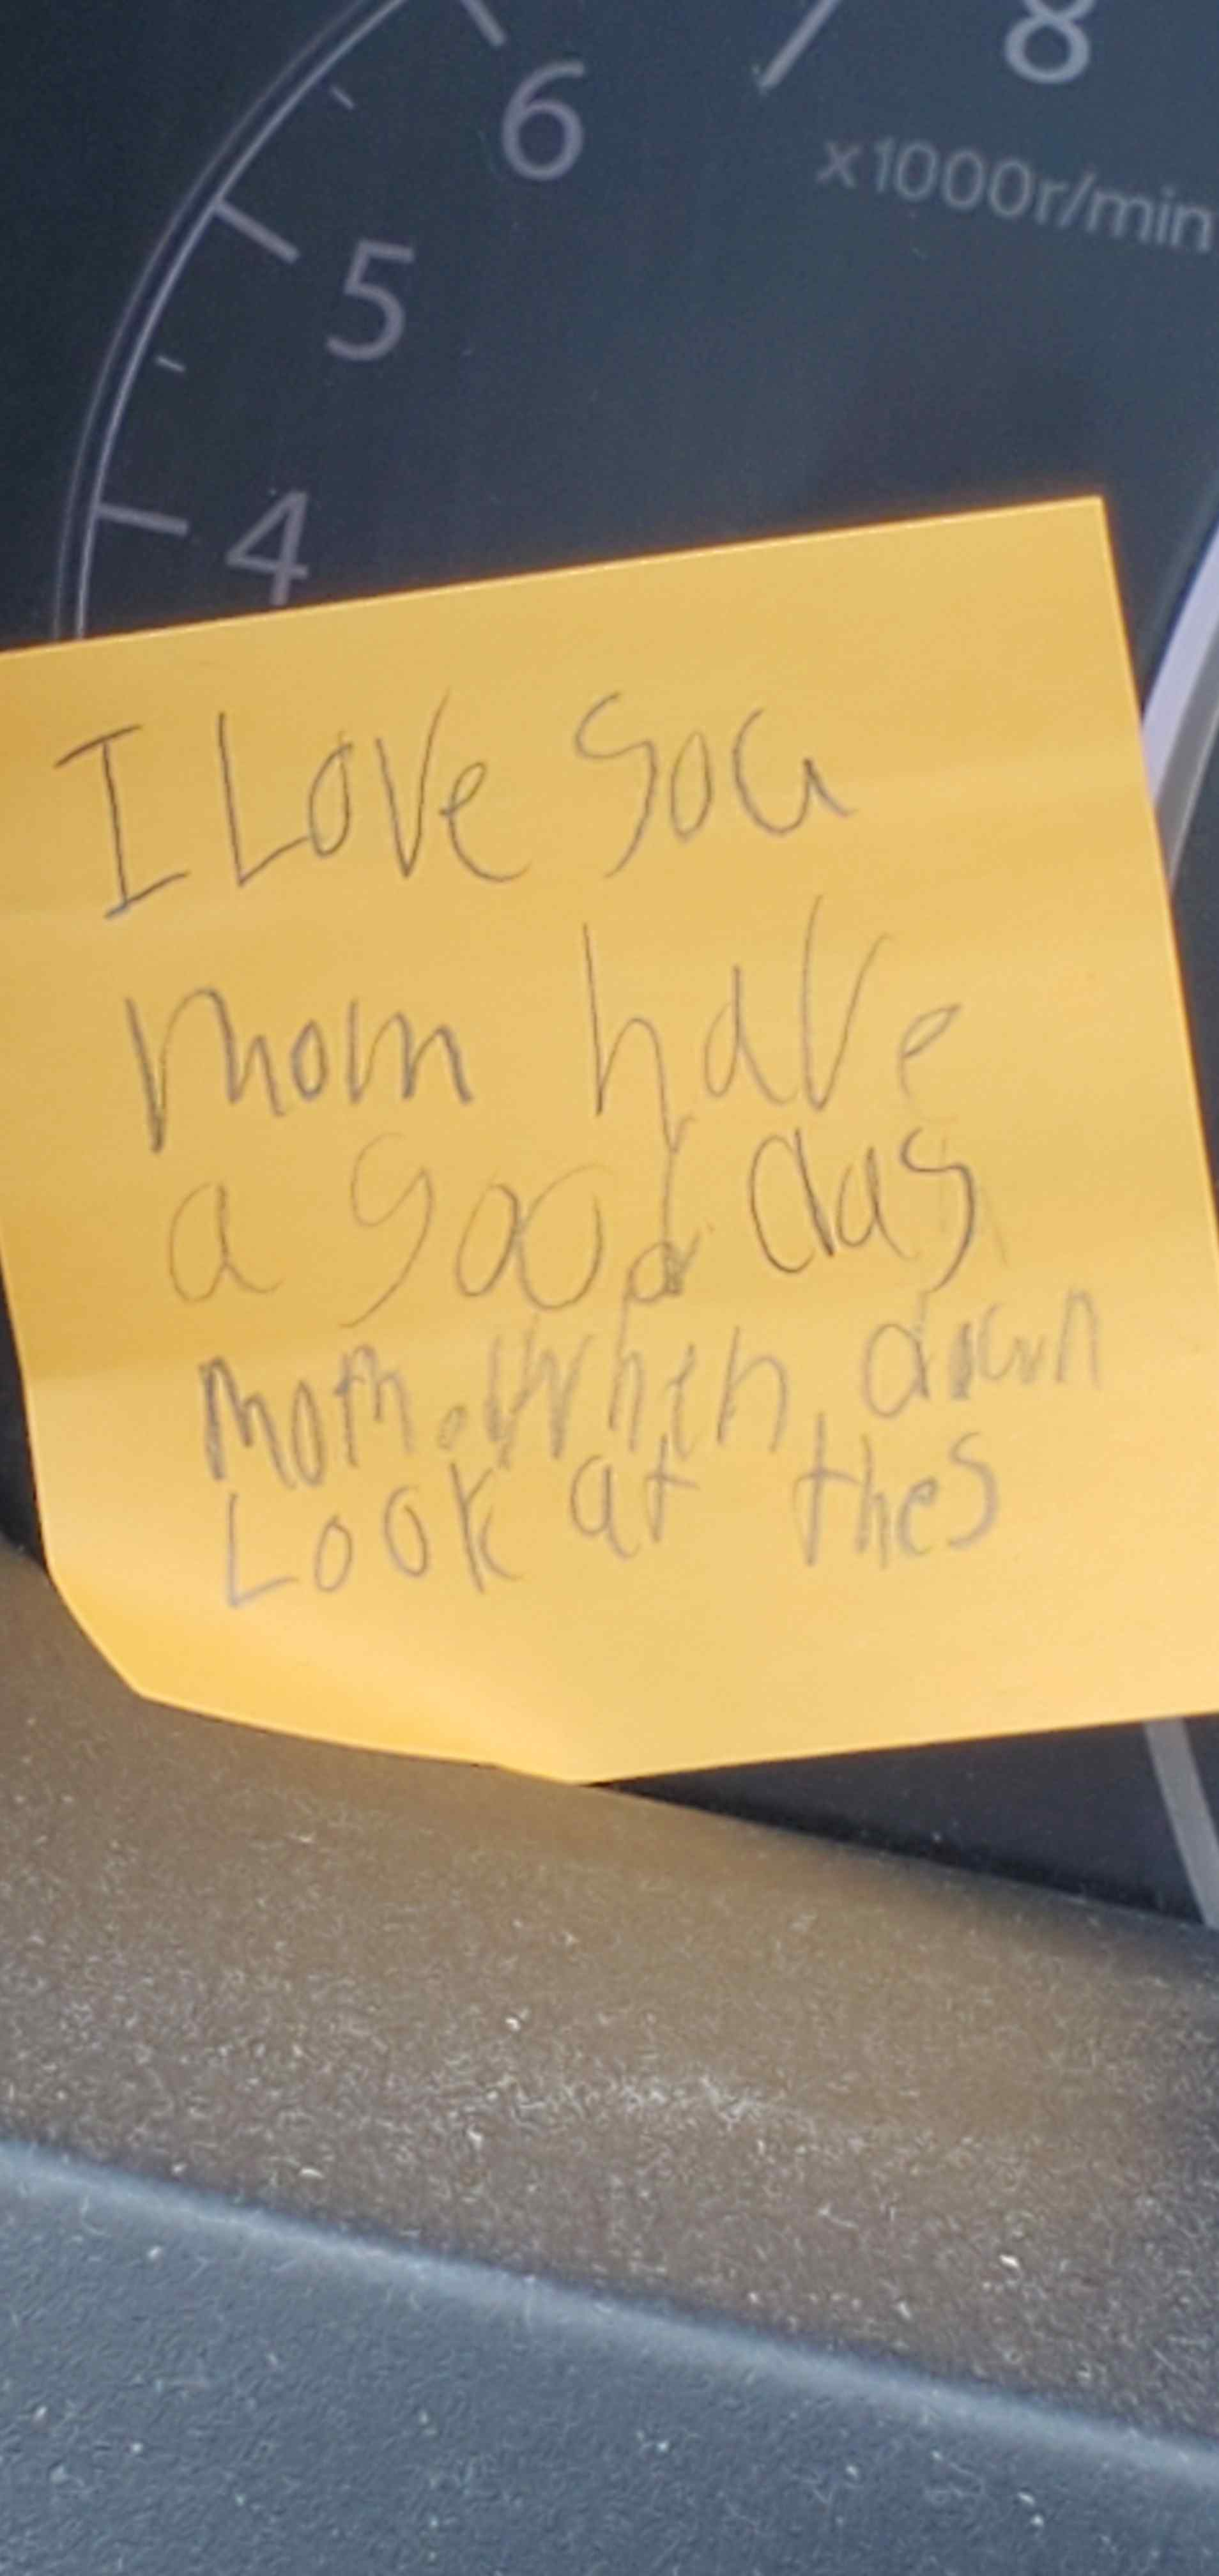 6
8
x1000r/min
5
4
I Love you
mom have
a good day
mom. When down
Look at thes